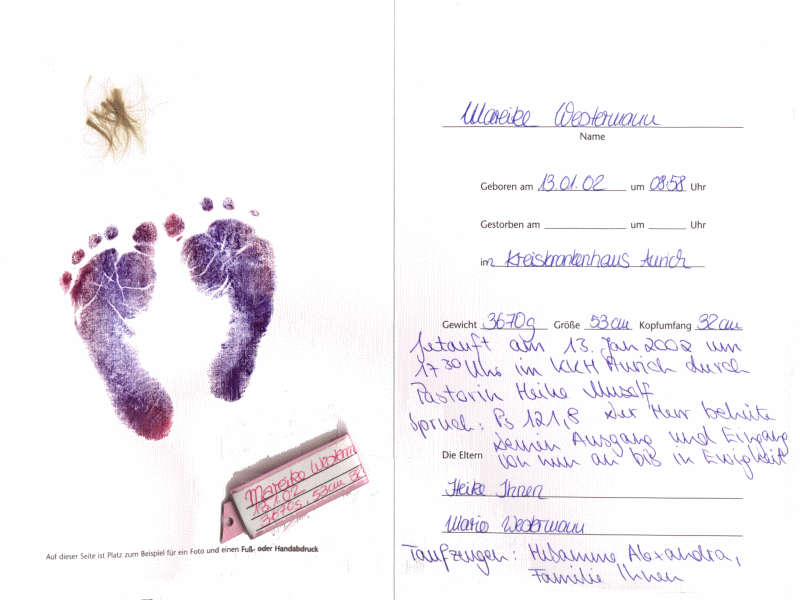 Auf dieser Seite ist Platz zum Beispiel für ein Foto und einen Fuß- oder Handabdruck
Mareike Westerm
13.1.02
3670g, 53cm
Mareike Westermann
Name
Geboren am 13.01.02 um 08:58 Uhr
Gestorben am um Uhr
im Kreiskrankenhaus Aurich
Gewicht 3670g Größe 53cm Kopfumfang 32cm
Getauft am 13. Jan 2002 um
17 30 Uhr im KKH Aurich durch
Pastorin Heike Musolf
Spruch: Ps 121,8 Der Herr behüte
deinen Ausgang und Eingang
Die Eltern von nun an bis in Ewigkeit
Heike Ihnen
Mario Westermann
Taufzeugen: Hebamme Alexandra,
Familie Ihnen